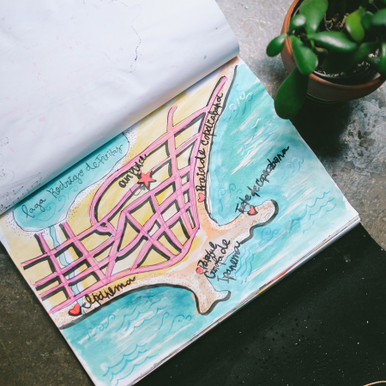 Lagoa Rodrigo de Freitas
Praia de Copacabana
Forte de Copacabana
Parque
Garota de
Ipanema
Ipanema